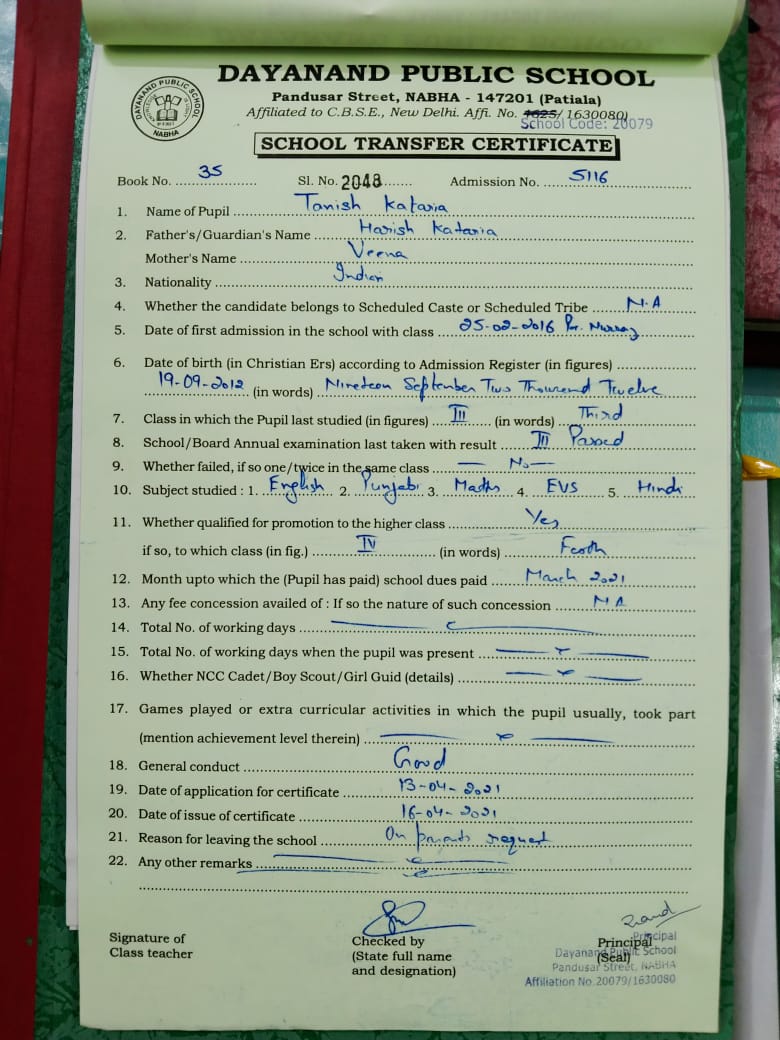 DAYANAND PUBLIC SCHOOL
Pandusar Street, NABHA - 147201 (Patiala)
Affiliated to C.B.S.E., New Delhi. Affi. No. 1625/1630080)
School Code: 20079
DAYANAND PUBLIC SCHOOL
NABHA
SCHOOL TRANSFER CERTIFICATE
Book No. 35 Sl. No. 2048 Admission No. 5116
1. Name of Pupil Tanish Kataria
2. Father's/Guardian's Name Harish Kataria
Mother's Name Veena
3. Nationality Indian
4. Whether the candidate belongs to Scheduled Caste or Scheduled Tribe N.A
5. Date of first admission in the school with class 25-02-2016 Pre. Nursery
6. Date of birth (in Christian Ers) according to Admission Register (in figures)
19-09-2012 (in words) Nineteen September Two Thousand Twelve
7. Class in which the Pupil last studied (in figures) III (in words) Third
8. School/Board Annual examination last taken with result III Passed
9. Whether failed, if so one/twice in the same class — No —
10. Subject studied : 1. English 2. Punjabi 3. Maths 4. EVS 5. Hindi
11. Whether qualified for promotion to the higher class Yes
if so, to which class (in fig.) IV (in words) Forth
12. Month upto which the (Pupil has paid) school dues paid March 2021
13. Any fee concession availed of : If so the nature of such concession NA
14. Total No. of working days
15. Total No. of working days when the pupil was present
16. Whether NCC Cadet/Boy Scout/Girl Guid (details)
17. Games played or extra curricular activities in which the pupil usually, took part
(mention achievement level therein)
18. General conduct Good
19. Date of application for certificate 13-04-2021
20. Date of issue of certificate 16-04-2021
21. Reason for leaving the school On parents request
22. Any other remarks
Signature of
Class teacher
Checked by
(State full name
and designation)
Principal
(Seal)
Principal
Dayanand Public School
Pandusar Street, NABHA
Affiliation No.20079/1630080